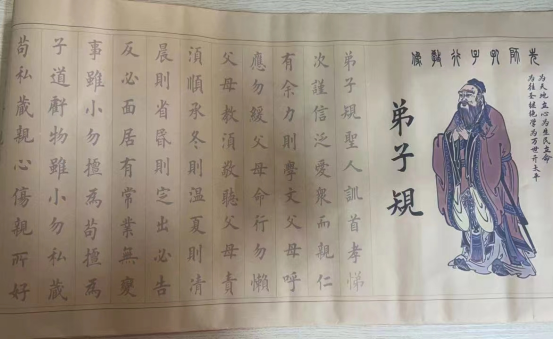 先師孔子行教像
为天地立心为生民立命
为往圣继绝学为万世开太平
弟子規
弟子規聖人訓首孝悌
次謹信泛愛衆而親仁
有余力則學文父母呼
應勿緩父母命行勿懶
父母教須敬聽父母責
須順承冬則溫夏則清
晨則省昏則定出必告
反必面居有常業無變
事雖小勿擅為苟擅為
子道虧物雖小勿私藏
苟私藏親心傷親所好